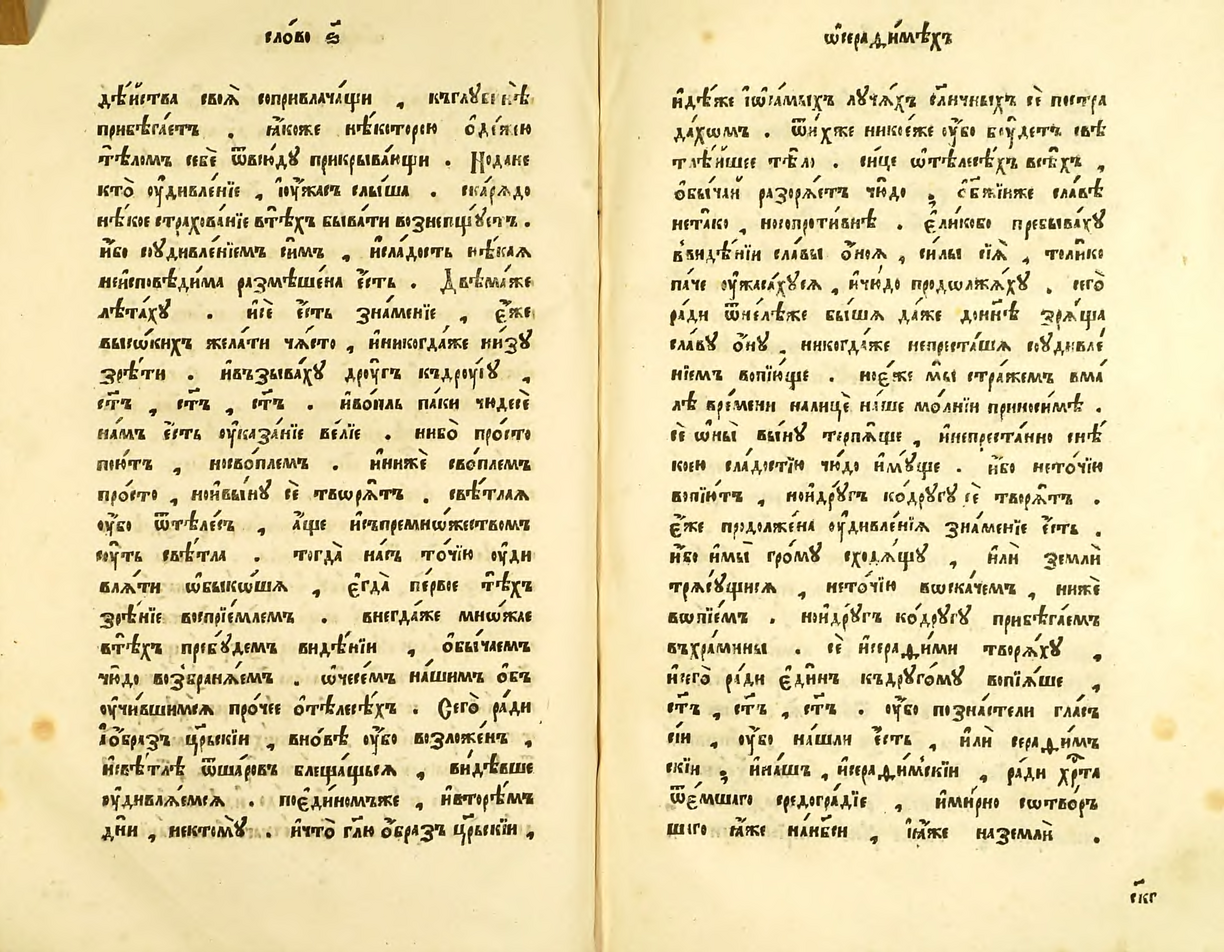 сло́во ѕ҃
дѣ́йства своѧ̀ сопривлача́щи , къглꙋбинѣ̀
прибѣга́етъ . ꙗ҆́коже нѣ́которою ѻ҆дѣ́жею
тѣ́ломъ себѐ ѿвсю́дꙋ прикрыва́ющи . Нода́не
кто̀ ѹ҆дивле́нїе , їѹ҆́жасъ слы́ша . ска́рѧдо
нѣ́кое страхова́нїе втѣ́хъ быва́ти вознепщꙋ́етъ .
и҆́бо соудивле́нїемъ си́мъ , и҆сла́дость нѣ́каѧ
неисповѣ́дима размѣ́шена є҆́сть . Двѣма́же
лѣта́хꙋ . и҆сѐ є҆́сть зна́менїе , є҆́же
высѡ́кихъ жела́ти ча́сто , и҆никогда́же ни́зꙋ
зрѣ́ти . и҆възыва́хꙋ дрꙋ́гъ къдрꙋ́гꙋ ,
ст҃ъ , ст҃ъ , ст҃ъ . и҆во́пль па́ки чюдесѐ
на́мъ є҆́сть ѹ҆каза́нїе ве́лїе . нибо̀ про́сто
пою́тъ , носво́племъ . и҆нижѐ сво́племъ
про́сто , ной҆вы́нꙋ сѐ творѧ́тъ . свѣ́тлаѧ
ѹ҆́бо ѿтѣле́съ , а҆́ще и҆съпремно́жествомъ
сꙋ́ть свѣ́тла . тогда̀ на́съ то́чїю ѹ҆ди
влѧ́ти ѡ҆быко́ша , є҆гда̀ пе́рвое тѣ́хъ
зрѣ́нїе воспрїе́млемъ . внегда́же мно́жае
втѣ́хъ пребꙋ́демъ ви́дѣнїи , ѻ҆бы́чаемъ
чю́до возбранѧ́емъ . ѡ҆чесе́мъ на́шимъ ѻ҆бъ
ѹчи́вшимсѧ про́чее ѻ҆тѣлесѣ́хъ . Сего̀ ра́ди
їѻ҆́бразъ цр҃ьскїи , вно́вѣ ѹ҆́бо возложе́нъ ,
и҆свѣ́тлѣ ѿша́ровъ блеща́щьсѧ , ви́дѣвше
ѹ҆дивлѧ́емсѧ . поє҆ди́номъже , и҆вторѣ́мъ
днѝ , нектомꙋ̀ . и҆что̀ гл҃ю ѻ҆́бразъ цр҃ьскїи ,
ѡ҆серафи́мѣхъ
и҆дѣ́же ї҆ѡ҆са́мыхъ лꙋча́хъ сл҃нчныхъ сѐ постра
да́хомъ . ѿни́хже никое́же ѹ҆́бо бꙋ́детъ свѣ
тлѣ́йшее тѣ́ло . си́це ѡ҆тѣлесѣ́хъ всѣ́хъ ,
ѻ҆бы́чай разорѧ́етъ чю́до , ѻ҆бж҃їи́же сла́вѣ
нета́ко , носопроти́внѣ . є҆ли́кобо пребыва́хꙋ
вви́дѣнїи сла́вы ѻ҆́ноѧ , си́лы сїѧ̀ , толи́ко
па́че ѹ҆жаса́хꙋсѧ , и҆чю́до продолжа́хꙋ . сего̀
ра́ди ѿне́лѣже бы́ша да́же дони́нѣ зрѧ́ща
сла́вꙋ ѻ҆́нꙋ , никогда́же непреста́ша соудивле́
нїемъ вопїю́ще . ноє҆́же мы̀ стра́жемъ вма́
лѣ вре́мени налицѐ на́ше мо́лнїи приноси́мѣ .
сѐ ѡ҆ны̀ вы́нꙋ терпѧ́ще , и҆непреста́нно снѣ́
коею сла́достїю чю́до и҆мꙋ́ще . и҆́бо нето́чїю
вопїю́тъ , ной҆дрꙋ́гъ ко́дрꙋгꙋ сѐ творѧ́тъ .
є҆́же продолже́на ѹ҆дивле́нїѧ зна́менїе є҆́сть .
и҆́бо и҆мы̀ гро́мꙋ сходѧ́щꙋ , и҆лѝ землѝ
трѧсꙋ́щисѧ , нето́чїю воска́чемъ , нижѐ
вопїе́мъ . ной҆дрꙋ́гъ ко́дрꙋгꙋ прибѣга́емъ
въхра́мины . сѐ и҆серафи́ми творѧ́хꙋ ,
и҆сего̀ ра́ди є҆ди́нъ къдрꙋго́мꙋ вопїѧ́ше ,
ст҃ъ , ст҃ъ , ст҃ъ . ѹ҆́бо позна́стели гла́съ
сі́и , ѹ҆́бо на́шли є҆́сть , и҆лѝ серафи́мъ
скїи ; и҆на́шъ , и҆серафи́мскїи , ра́ди хр҃та
ѿе́мшаго средогра́дїе , и҆ми́рно сотво́рь
шаго ꙗ҆́же нан҃бси , їꙗ҆́же наземлѝ .